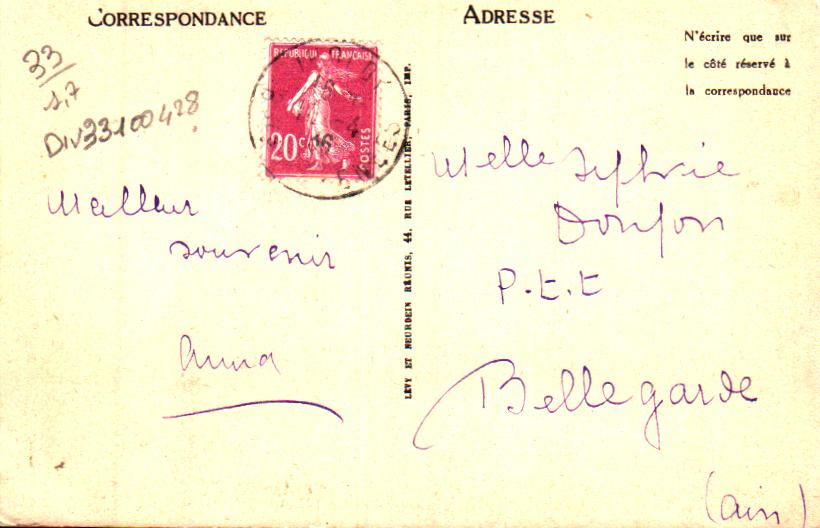 CORRESPONDANCE
33
1,7
DIV33100428
REPUBLIQUE FRANÇAISE
20c
POSTES
Meilleur
souvenir
Anna
LÉVY ET NEURDEIN RÉUNIS, 44, RUE LETELLIER, PARIS, IMP.
ADRESSE
N'écrire que sur
le côté réservé à
la correspondance
Melle Sylvie
Donjon
P.T.T
Bellegarde
(Ain)